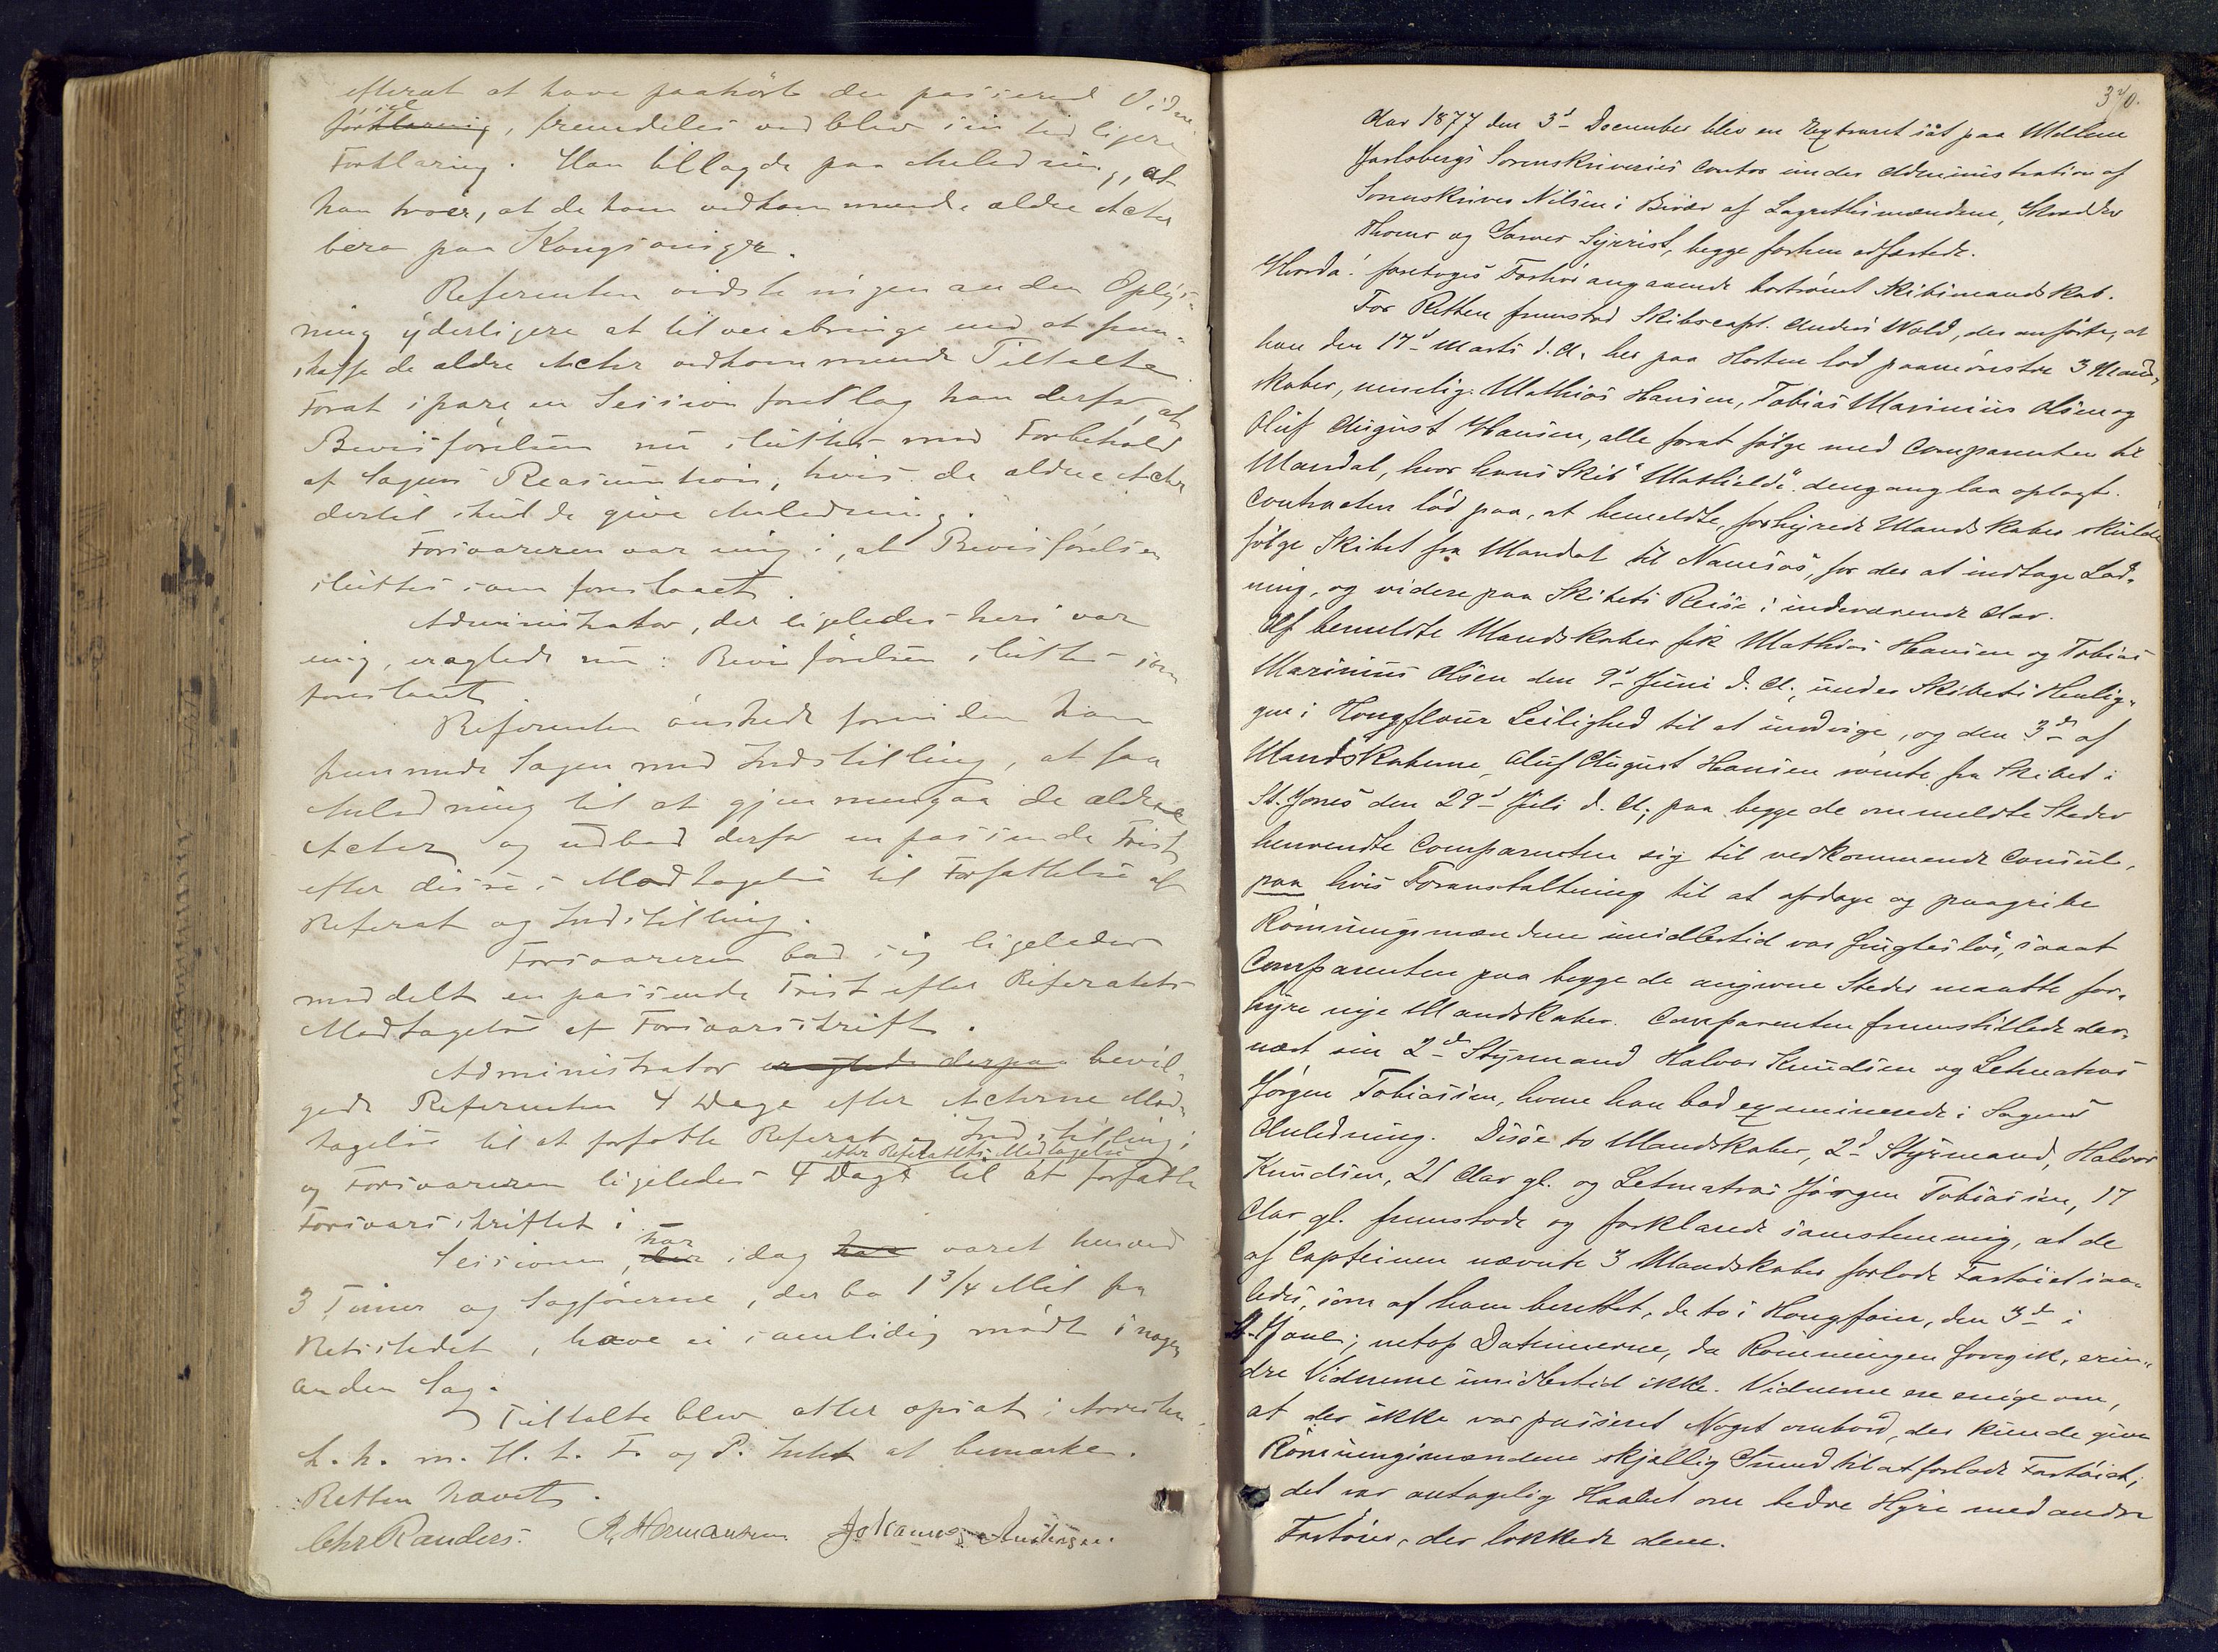 efterat at have paahørt den passerede Vidne
sigl
forklaring, fremdeles ved blev sin tidligere
Forklaring. Han tillagde paa Anledning, at
han troer, at de ham vedkommende ældre Acter
bero paa Kongsvinger.
Referenten vidste ingen anden Oplys-
ning yderligere at tilveiebringe end at frem-
skaffe de ældre Acter vedkommende Tiltalte.
Forat spare en Session foreslog han derfor, at
Bevisførelsen nu sluttes med Forbehold
af Sagens Reasumtion, hvis de ældre Acter
dertil skulde give Anledning.
Forsvareren var enig i, at Bevisførelsen
sluttes som foreslaaet.
Administrator, der ligeledes heri var
enig, eragtede nu: Bevisførelsen sluttes som
foreslaaet.
Referenten ønskede forinden han
fremmede Sagen med Indstilling, at faa
Anledning til at gjennemgaa de ældre
Acter og udbad derfor en passende Frist
efter disses Modtagelse til Forfattelse af
Referat og Indstilling.
Forsvareren bad sig ligeledes
meddelt en passende Frist efter Referatets
Modtagelse af Forsvarsskrift.
Administrator eragtede derpaa bevil-
gede Referenten 4 Dage efter Acternes Mod-
tagelse til at forfatte Referat og Indstilling;
efter Referatets Modtagelse
og Forsvareren ligeledes 4 Dage til at forfatte
Forsvarsskriftet.
har
Sessionen, der idag har varet henved
3 Timer og Sagførerne, der bo 1 3/4 Mil fra
Retsstedet, have ei samtidig mødt i nogen
anden Sag.
Tiltalte blev atter opsat i Arresten.
L. h. m. H. t. F. og P. Intet at bemærke.
Retten hævet.
Chr Randers. R, Hermansen Johannes Andersen.
370.
Aar 1877 den 3d December blev en Extraret sat paa Mellem
Jarlsbergs Sorenskriveries Contor under Administration af
Sorenskriver Nilsen i Bivær af Lagrettesmændene, Skrædder
Thoms og Sørves Syrrist, begge forhen edfæstede.
Hvorda: foretoges Forhør angaaende bortrømt Skibsmandskab.
For Retten fremstod Skibscapt. Anders Wold, der anførte, at
han den 17d Marts d. A. her paa Horten lod paamønstre 3 Mand-
skaber, nemlig: Mathias Hansen, Tobias Marinius Olsen og
Oluf August Hansen, alle forat følge med Comparenten til
Mandal, hvor hans Skib "Mathilde" dengang laa oplagt.
Contracten lød paa, at bemeldte, forhyrede Mandskaber skulde
følge Skibet fra Mandal til Namsos, for der at indtage Lad-
ning, og videre paa Skibets Reise i indeværende Aar.
Af bemeldte Mandskaber fik Mathias Hansen og Tobias
Marinius Olsen den 9d Juni d. A., under Skibets Henlig-
gen i Hongfleur Leilighed til at undvige, og den 3de af
Mandskaberne, Oluf August Hansen rømte fra Skibet i
St. Jones den 29d Juli d. A.; paa begge de ommeldte Steder
henvendte Comparenten sig til vedkommende Consul,
paa hvis Foranstaltning til at opdage og paagribe
Rømningsmændene imidlertid var frugtesløs, saaat
Comparenten paa begge de angivne Steder maatte for-
hyre nye Mandskaber. Comparenten fremstillede der-
næst sin 2den Styrmand Halvor Knudsen og Letmatros
Jørgen Tobiassen, hvem han bad examinerede i Sagens
Anledning. Disse to Mandskaber, 2d Styrmand, Halvor
Knudsen, 21 Aar gl. og Letmatros Jørgen Tobiassen, 17
Aar gl. fremstode og forklarede samstemmig, at de
af Capteinen nævnte 3 Mandskaber forlode Fartøiet saa-
ledes, som af ham berettet, de to i Hongfleur, den 3de i
St. Jones; netop Datumerne, da Rømningen foregik, erin-
dre Vidnerne imidlertid ikke. Vidnerne ere enige om,
at der ikke var passeret Noget ombord, der kunde give
Rømningsmændene skjellig Grund til at forlade Fartøiet;
det var antagelig Haabet om bedre Hyre med andre
Fartøier, der lokkede dem.